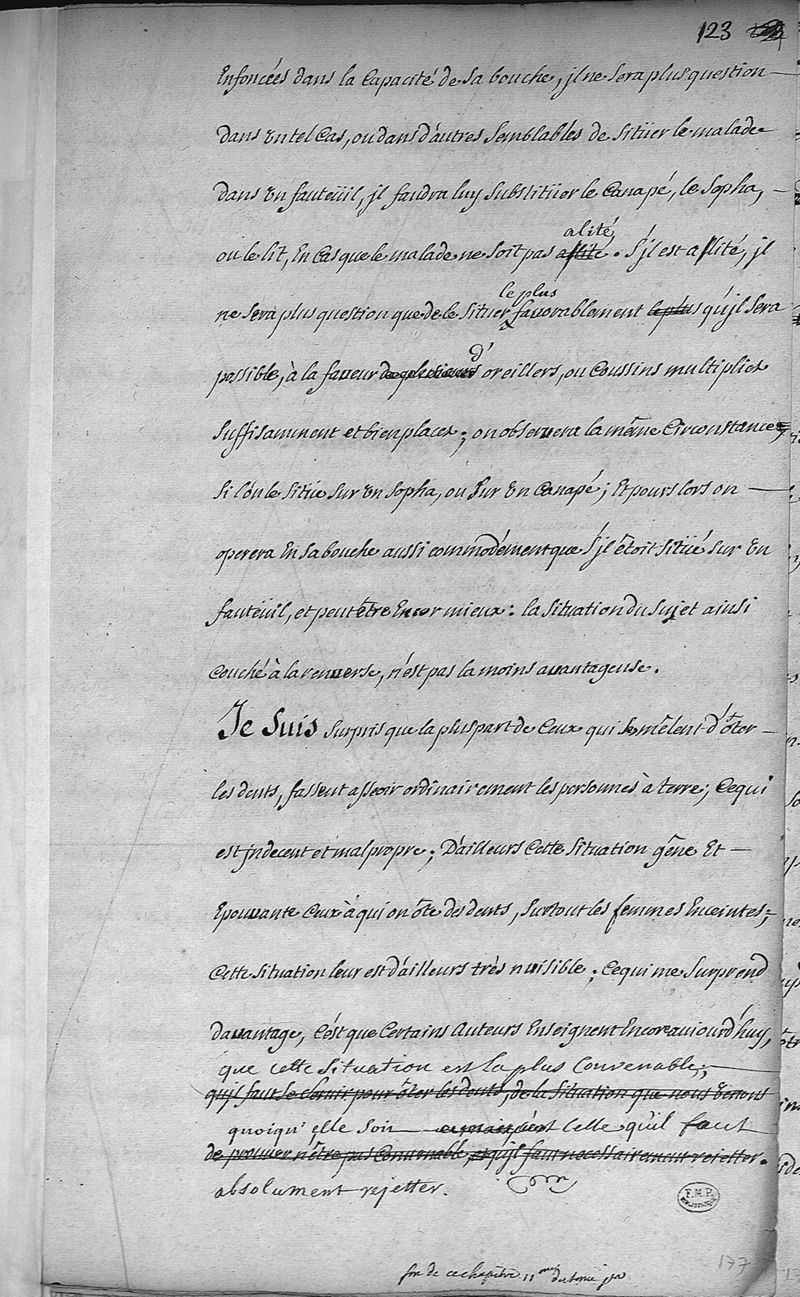 123
Enfoncées dans la Capacité de sa bouche, jl ne sera plus question
dans un tel Cas, ou dans d'autres semblables de sitüer le malade
dans un fauteüil, jl faudra luy substitüer le Canapé, le sopha,
alité,
ou le lit, En cas que le malade ne soit pas aslité. S'jl est aslité, jl
le plus
ne sera plus question que de le situer favorablement le plus qu'jl sera
d'
possible, à la faveur de plusieurs oreillers, ou Coussins multipliez
suffisamment et bien placez; on observera la même Circonstance,
si l'on le sitüe sur un sopha, ou sur un Canapé; Et pours lors on
operera En sa bouche aussi commodément que s'jl étoit sitüé sur un
fauteüil, et peut être Encor mieux: la situation du sujet ainsi
Couché à la renverse, n'est pas la moins avantageuse.
Je suis surpris que la plus part de Ceux qui se mêlent d'ôter
les dents, fassent asseoir ordinairement les personnes à terre; Ce qui
est jndecent et mal propre; D'ailleurs Cette situation gêne Et
Epouvante Ceux à qui on ôte des dents, surtout les femmes Enceintes;
Cette situation leur est d'ailleurs très nuisible; Ce qui me surprend
davantage, C'est que Certains Auteurs Enseignent Encore aujourd'huy,
que cette situation est la plus Convenable;
qu'jl faut se servir pour ôter les dents, de la situation que nous venons
quoiqu'elle soit Celle qu'il faut
de prouver n'être pas Convenable, et qu'jl faut necessairement rejetter.
absolument rejetter.
F.M.P.
fin de ce chapitre 11<sup>me</sup> du tome p<sup>er</sup>
177